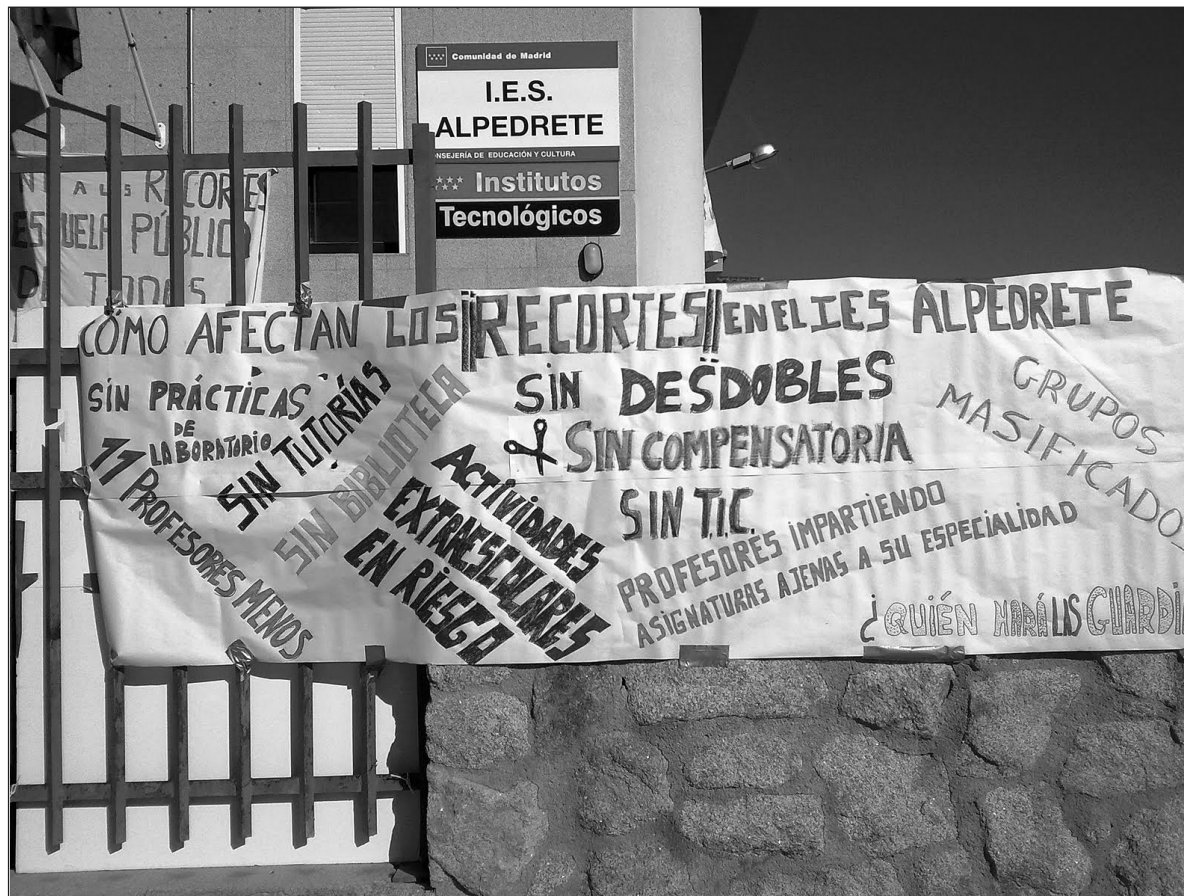 Comunidad de Madrid
I.E.S.
ALPEDRETE
CONSEJERÍA DE EDUCACIÓN Y CULTURA
Institutos
Tecnológicos
A LOS RECORTES
ESCUELA PÚBLICA
DE TODOS
CÓMO AFECTAN LOS ¡¡RECORTES!! EN EL IES ALPEDRETE
SIN PRÁCTICAS
DE
LABORATORIO
SIN TUTORÍAS
SIN BIBLIOTECA
11 PROFESORES MENOS
ACTIVIDADES
EXTRAESCOLARES
EN RIESGO
SIN DESDOBLES
SIN COMPENSATORIA
SIN T.I.C.
PROFESORES IMPARTIENDO
ASIGNATURAS AJENAS A SU ESPECIALIDAD
GRUPOS
MASIFICADOS
¿QUIÉN HARÁ LAS GUARDI